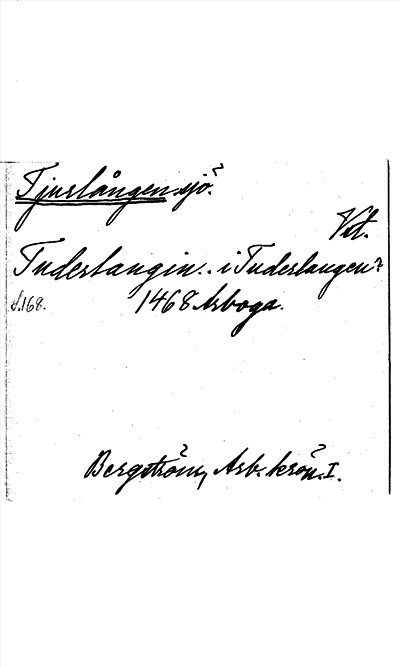 Tjurlången sjö.
Vit.
Tuderlangin.. i Tuderlangen?
s. 168. 1468 Arboga.
Bergström, Arb. krön. I.